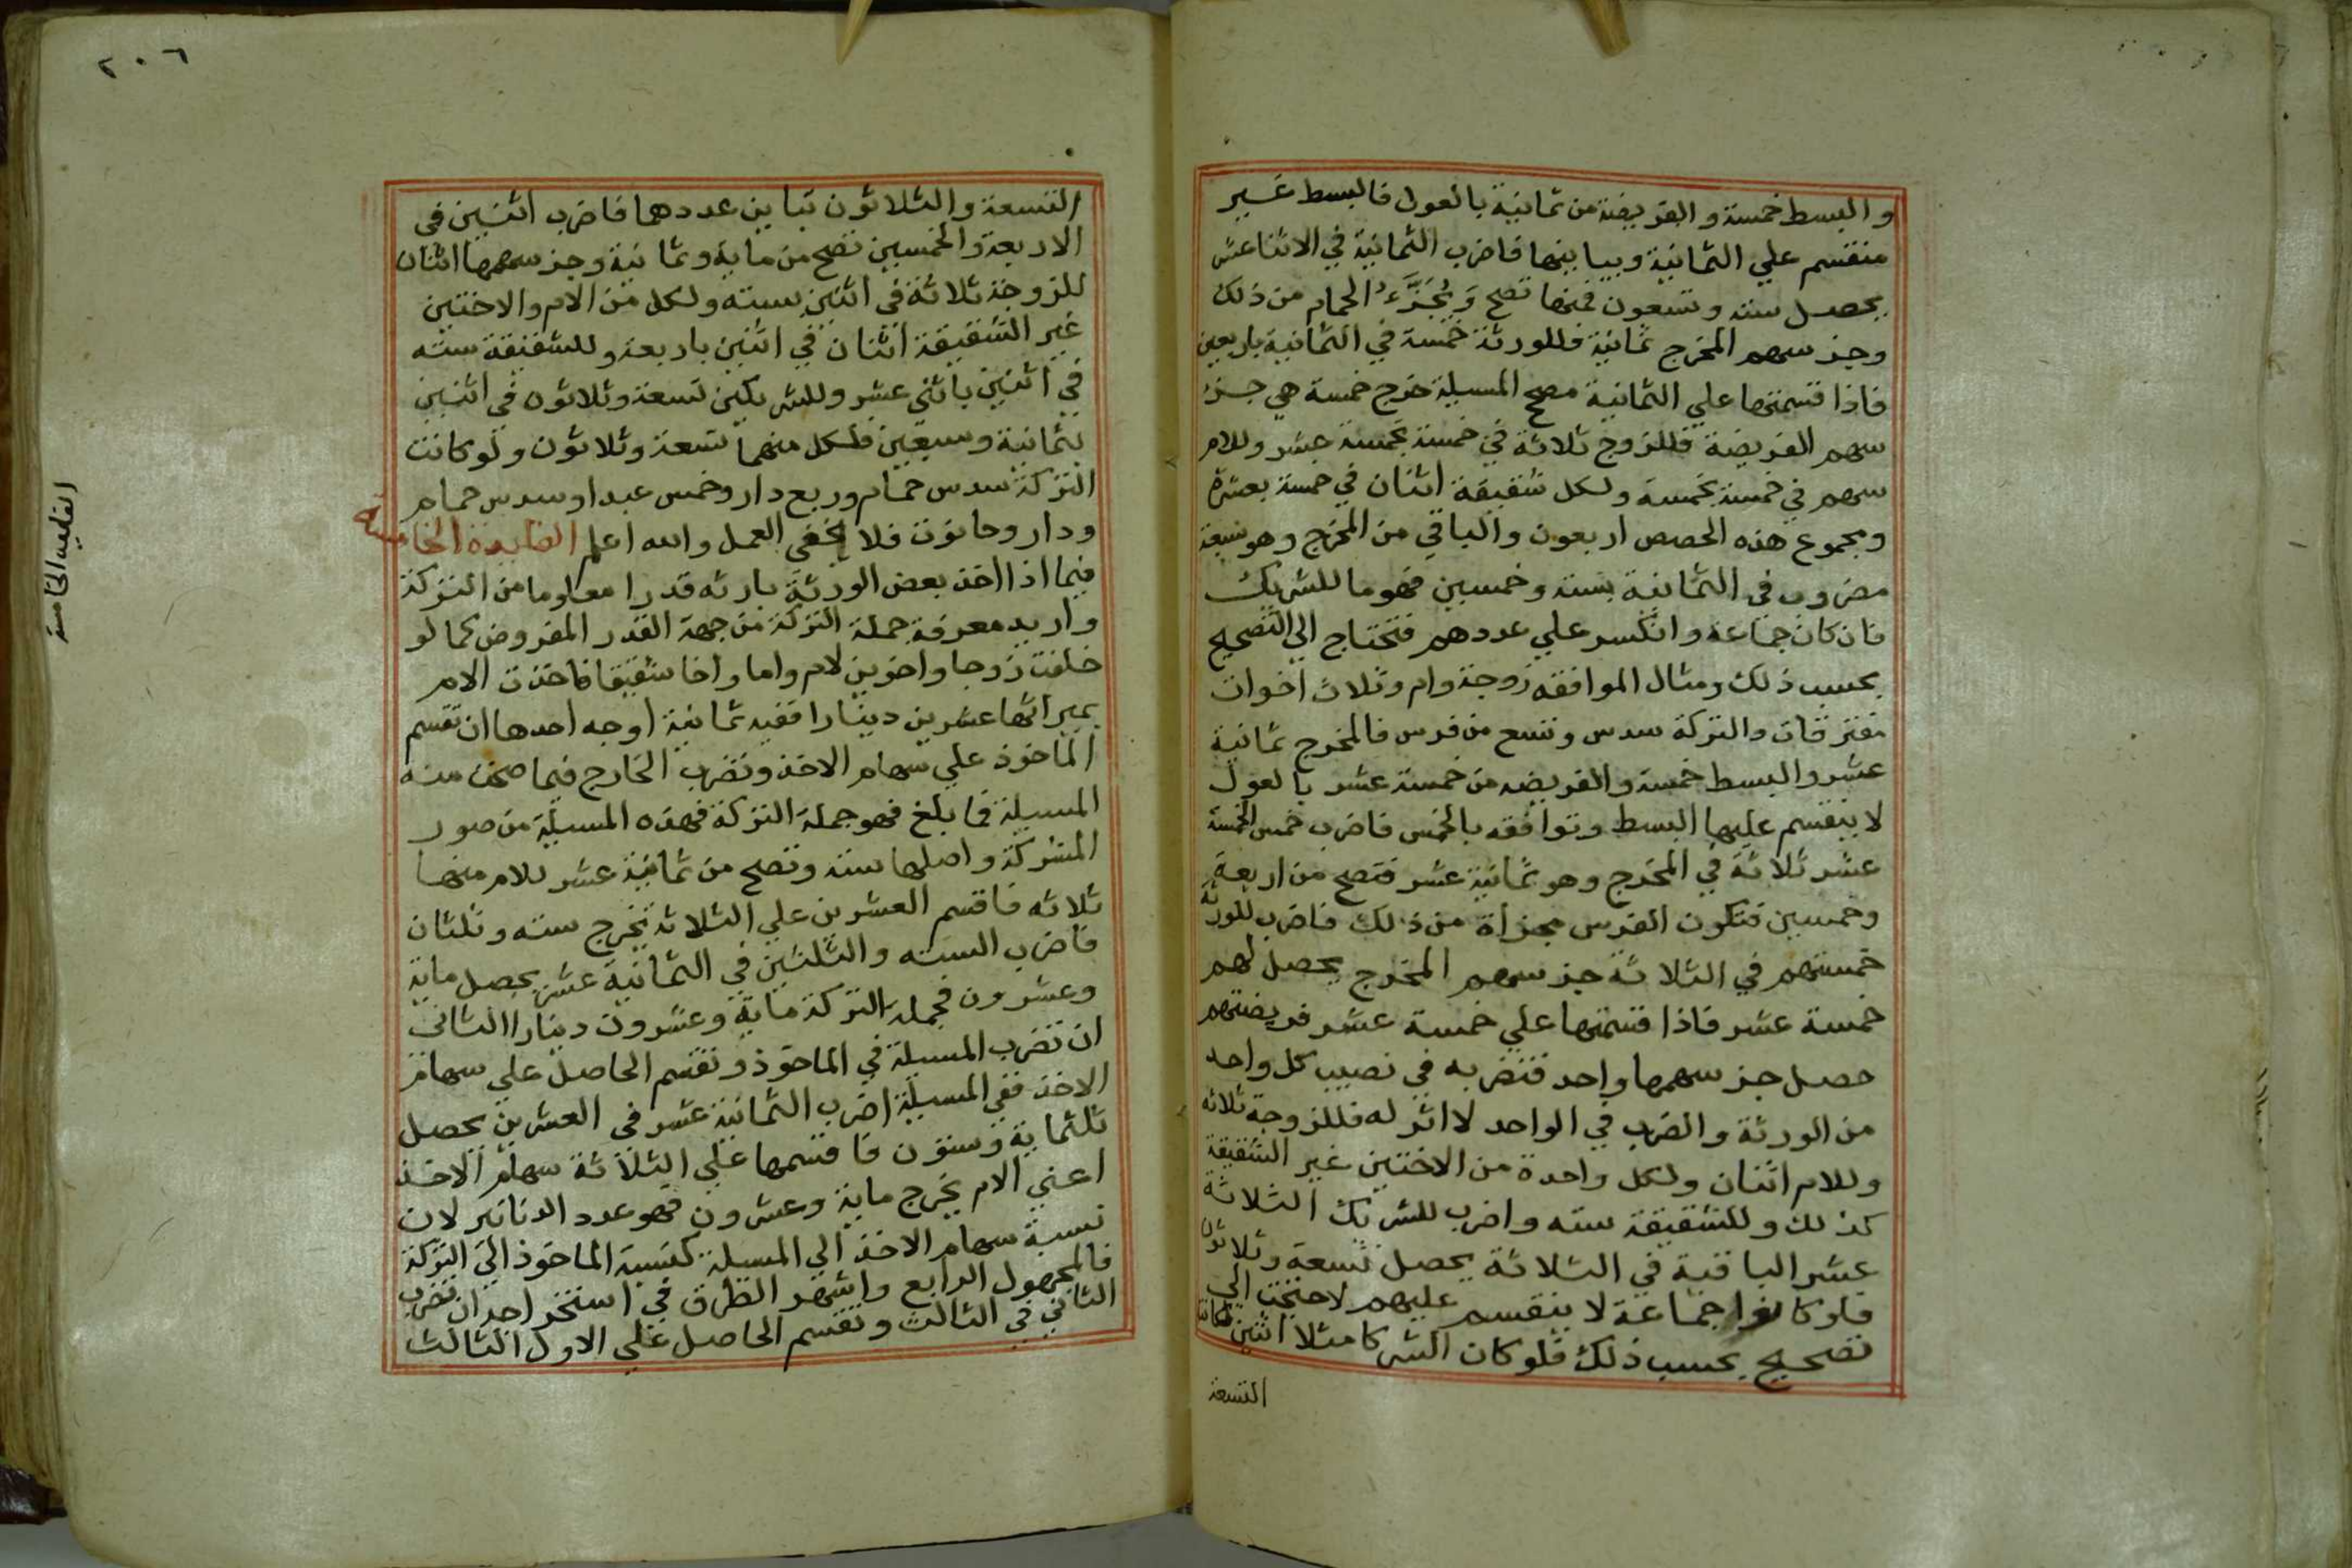 والبسط خمسة والفريضة من ثمانية بالعول فالبسط غير
منقسم علي الثمانية ويباينها فاضرب الثمانية في الاثنا عشر
يحصل ستة وتسعون فمنها تصح وَيُجَزَّءُ الحمام من ذلك
وجز سهم المخرج ثمانية فللورثة خمسة في الثمانية باربعين
فاذا قسمتها علي الثمانية مصح المسيلة خرج خمسة هي جزء
سهم الفريضة فللزوج ثلاثة في خمسة بخمسة عشر وللام
سهم في خمسة بخمسة ولكل شقيقة اثنان في خمسة بعشرة
ومجموع هذه الحصص اربعون والباقي من المخرج وهو سبعة
مضروب في الثمانية بستة وخمسين فهو ما للشريك
فان كان جماعة وانكسر علي عددهم فتحتاج الي التصحيح
بحسب ذلك ومثال الموافقه زوجة وام وثلاث اخوات
مفترقات والتركة سدس وتسع من فرس فالمخرج ثمانية
عشر والبسط خمسة والفريضه من خمسة عشر بالعول
لا ينقسم عليها البسط وتوافقه بالخمس فاضرب خمس الخمسة
عشر ثلاثة في المخرج وهو ثمانية عشر فتصح من اربعة
وخمسين فتكون الفرس مجزأة من ذلك فاضرب للورثة
خمستهم في الثلاثة جز سهم المخرج يحصل لهم
خمسة عشر فاذا قسمتها علي خمسة عشر فريضتهم
حصل جز سهمها واحد فتضربه في نصيب كل واحد
من الورثة والضرب في الواحد لا اثر له فللزوجة ثلاثه
وللام اثنان ولكل واحدة من الاختين غير الشقيقة
كذلك وللشقيقة سته واضرب للشريك الثلاثة
عشر الباقية في الثلاثة يحصل تسعة وثلاثون
فلو كانوا جماعة لا ينقسم عليهم لاحتجت الي
تصحيح بحسب ذلك فلو كان الشركا مثلا اثنين لكانت
التسعة
٢٠٦
التسعة والثلاثون تباين عددهما فاضرب اثنين في
الاربعة والخمسين تصح من ماية وثمانية وجز سهمها اثنان
للزوجة ثلاثة في اثنين بسته ولكل من الام والاختين
غير الشقيقة اثنان في اثنين باربعة وللشقيقة سته
في اثنين باثني عشر وللشريكين تسعة وثلاثون في اثنين
بثمانية وسبعين فلكل منهما تسعة وثلاثون ولو كانت
التركة سدس حمام وربع دار وخمس عبد او سدس حمام
ودار وحانوت فلا يخفي العمل والله اعلم الفايدة الخامسة
فيما اذا اخذ بعض الورثة بارثه قدرا معلوما من التركة
واريد معرفة جملة التركة من جهة القدر المفروض كما لو
خلفت زوجا واخوين لام واما واخا شقيقا فاخذت الام
بميراثها عشرين دينارا ففيه ثمانية اوجه احدها ان تقسم
الماخوذ علي سهام الاخذ وتضرب الخارج فيما صحت منه
المسيلة فما بلغ فهو جملة التركة فهذه المسيلة من صور
المشركة واصلها ستة وتصح من ثمانية عشر للام منها
ثلاثه فاقسم العشرين علي الثلاثه تخرج سته وثلثان
فاضرب السته والثلثين في الثمانية عشر يحصل ماية
وعشرون فجملة التركة ماية وعشرون دينارا الثاني
ان تضرب المسيلة في الماخوذ وتقسم الحاصل علي سهام
الاخذ ففي المسيلة اضرب الثمانية عشر في العشرين يحصل
ثلثماية وستون فاقسمها علي الثلاثة سهام الاخذ
اعني الام يخرج ماية وعشرون فهو عدد الدنانير لان
نسبة سهام الاخذ الي المسيلة كنسبة الماخوذ الي التركة
فالمجهول الرابع واشهر الطرق في استخراجه ان تضرب
الثاني في الثالث وتقسم الحاصل علي الاول الثالث
الفايده الخامسة